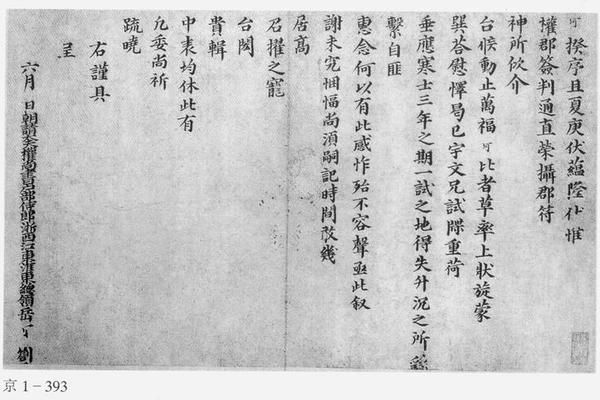 珂揆序且夏庚伏蘊隆伏惟
權郡簽判通直榮攝郡符
神所欣介
台候動止萬福珂比者草率上狀旋蒙
巽荅慰懌曷已宇文兄試牒重荷
垂應寒士三年之期一試之地得失升沉之所繇
繫自匪
惠念何以有此感怍殆不容聲亟此叙
謝未究悃愊尚須嗣記時間改幾
居高
召擢之寵
台閎
貴輯
中表均休此有
允委尚祈
疏曉
右謹具
呈
六月 日朝請大夫權尚書戶部侍郎浙西江東淮東總領岳珂劄
京1-393